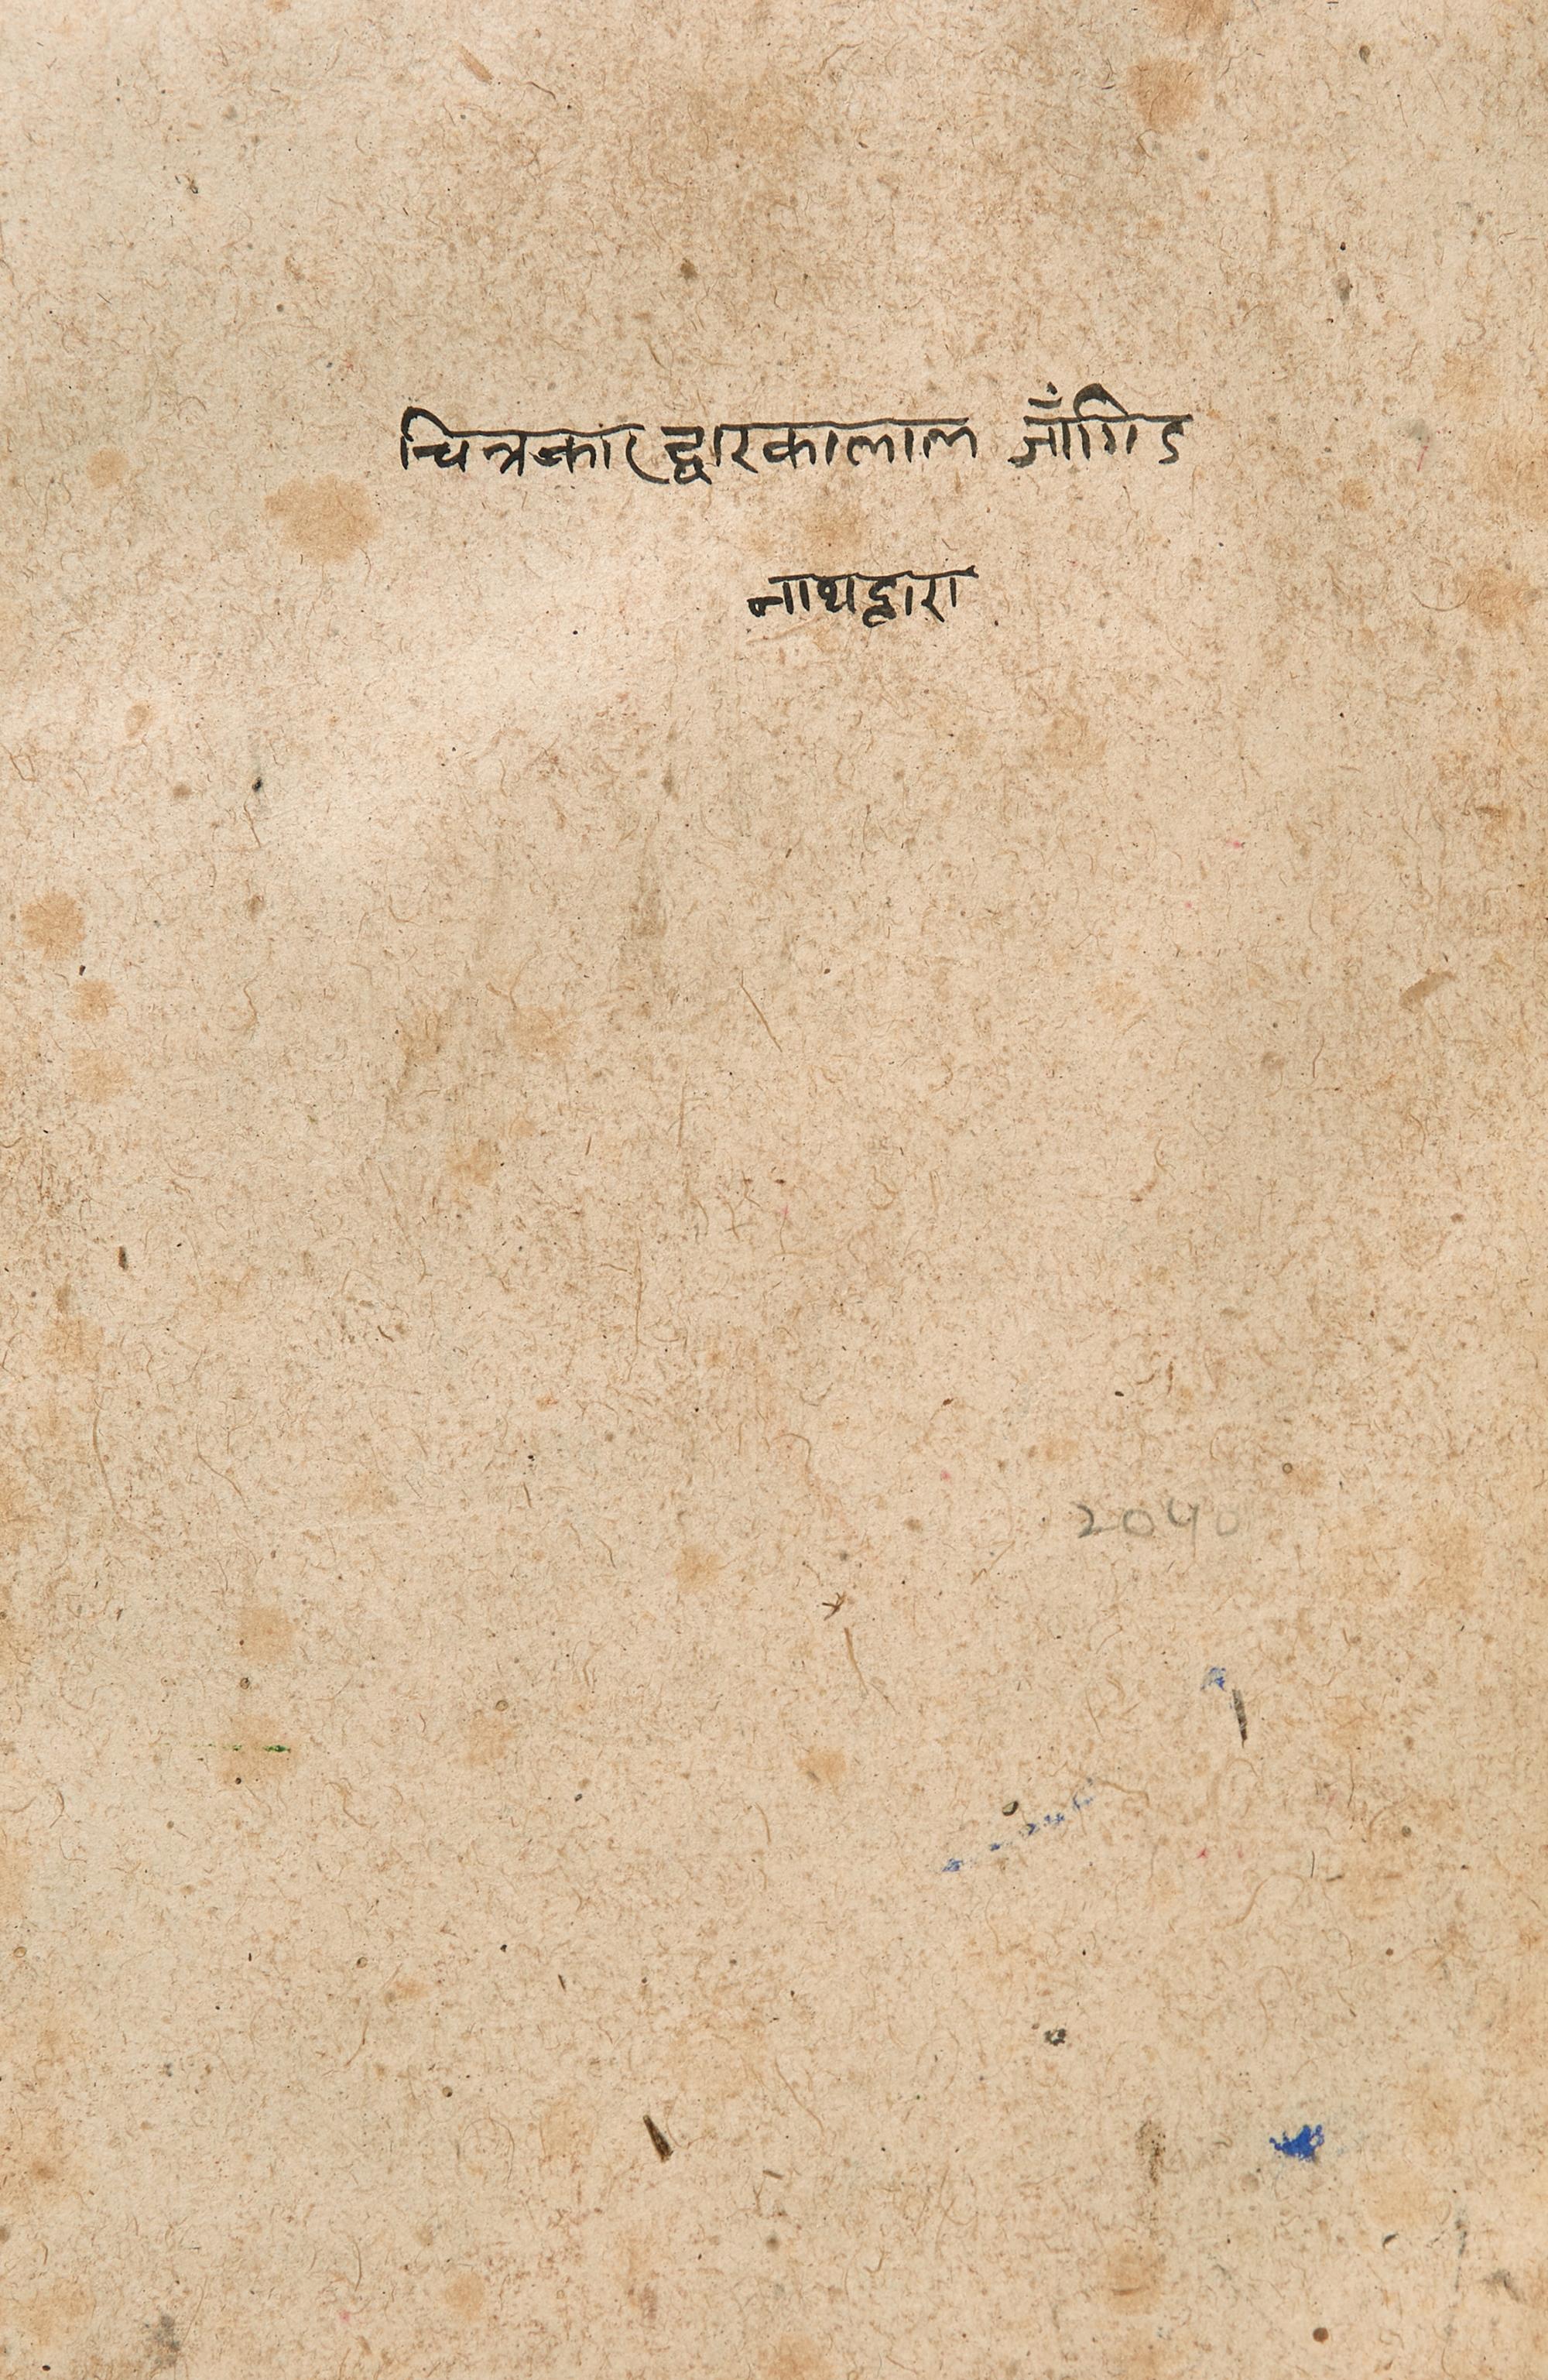 चित्रकार द्वारकालाल जाँगिड
नाथद्वारा
2040